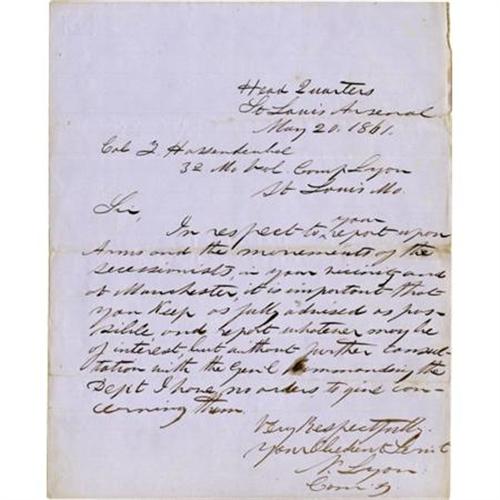 Head Quarters
St Louis Arsenal
May 20. 1861.
Col F Hassendeubel
3d Mo Vol. Camp Lyon
St Louis Mo.
Sir,
your
In respect to report upon
Arms and the movements of the
secessionists, in your vicinity and
at Manchester, it is important that
you Keep as fully advised as pos-
sible and report whatever may be
of interest, but without further consul-
tation with the Gen'l Commanding the
Dept I have no orders to give con-
cerning them.
Very Respectfully
Your Obedient Servt
N. Lyon
Com'g